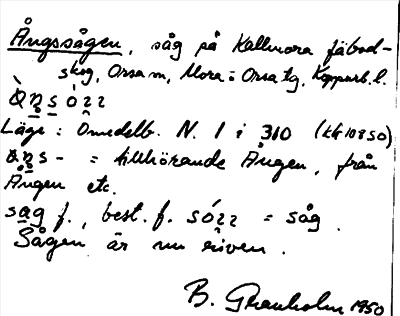 Ångssågen, såg på Kallmora fäbod-
skog, Orsa sn, Mora o Orsa tg, Kopparb. l.
Läge: Omedelb. N. 1 i 310 (kk 10850)
= tillhörande Ången, från
Ången etc.
sag f., best. f. = såg.
Sågen är nu riven.
B. Granholm 1950